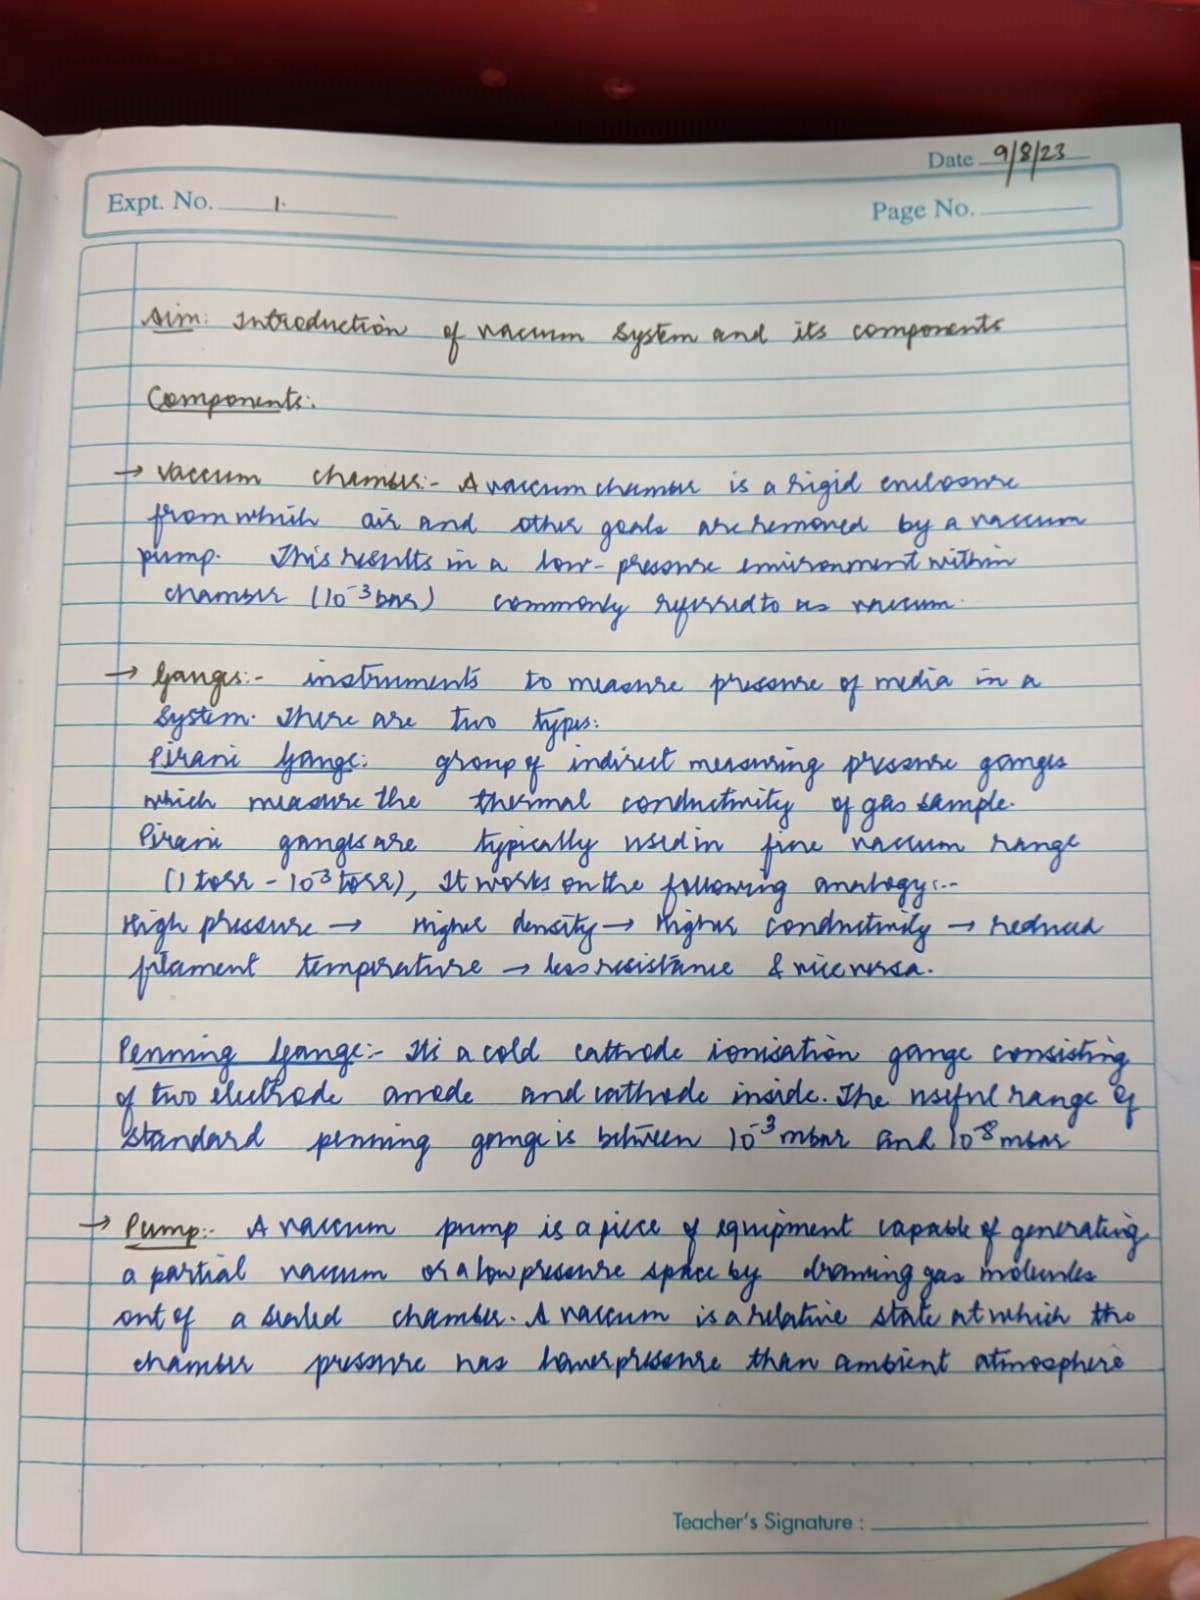 Date 9/8/23
Expt. No. 1.
Page No.
Aim: Introduction of vaccum system and its components
Components:
→ Vaccum chamber:- A vaccum chamber is a rigid enclosure
from which air and other goals are removed by a vaccum
pump. This results in a low-pressure environment within
chamber (10⁻³ bar) commonly referred to as vaccum.
→ Gauges:- instruments to measure pressure of media in a
system. There are two types:
Pirani Gauge: group of indirect measuring pressure gauges
which measure the thermal conductivity of gas sample.
Pirani gauges are typically used in fine vaccum range
(1 torr - 10⁻³ torr), It works on the following analogy:--
High pressure → Higher density → Higher conductivity → reduced
filament temperature → less resistance & vice versa.
Penning Gauge:- Its a cold cathode ionisation gauge consisting
of two electrode anode and cathode inside. The useful range of
standard penning gauge is between 10⁻³ mbar and 10⁻⁸ mbar
→ Pump:- A vaccum pump is a piece of equipment capable of generating
a partial vaccum or a low pressure space by drawing gas molecules
out of a sealed chamber. A vaccum is a relative state at which the
chamber pressure has lower pressure than ambient atmosphere
Teacher's Signature :